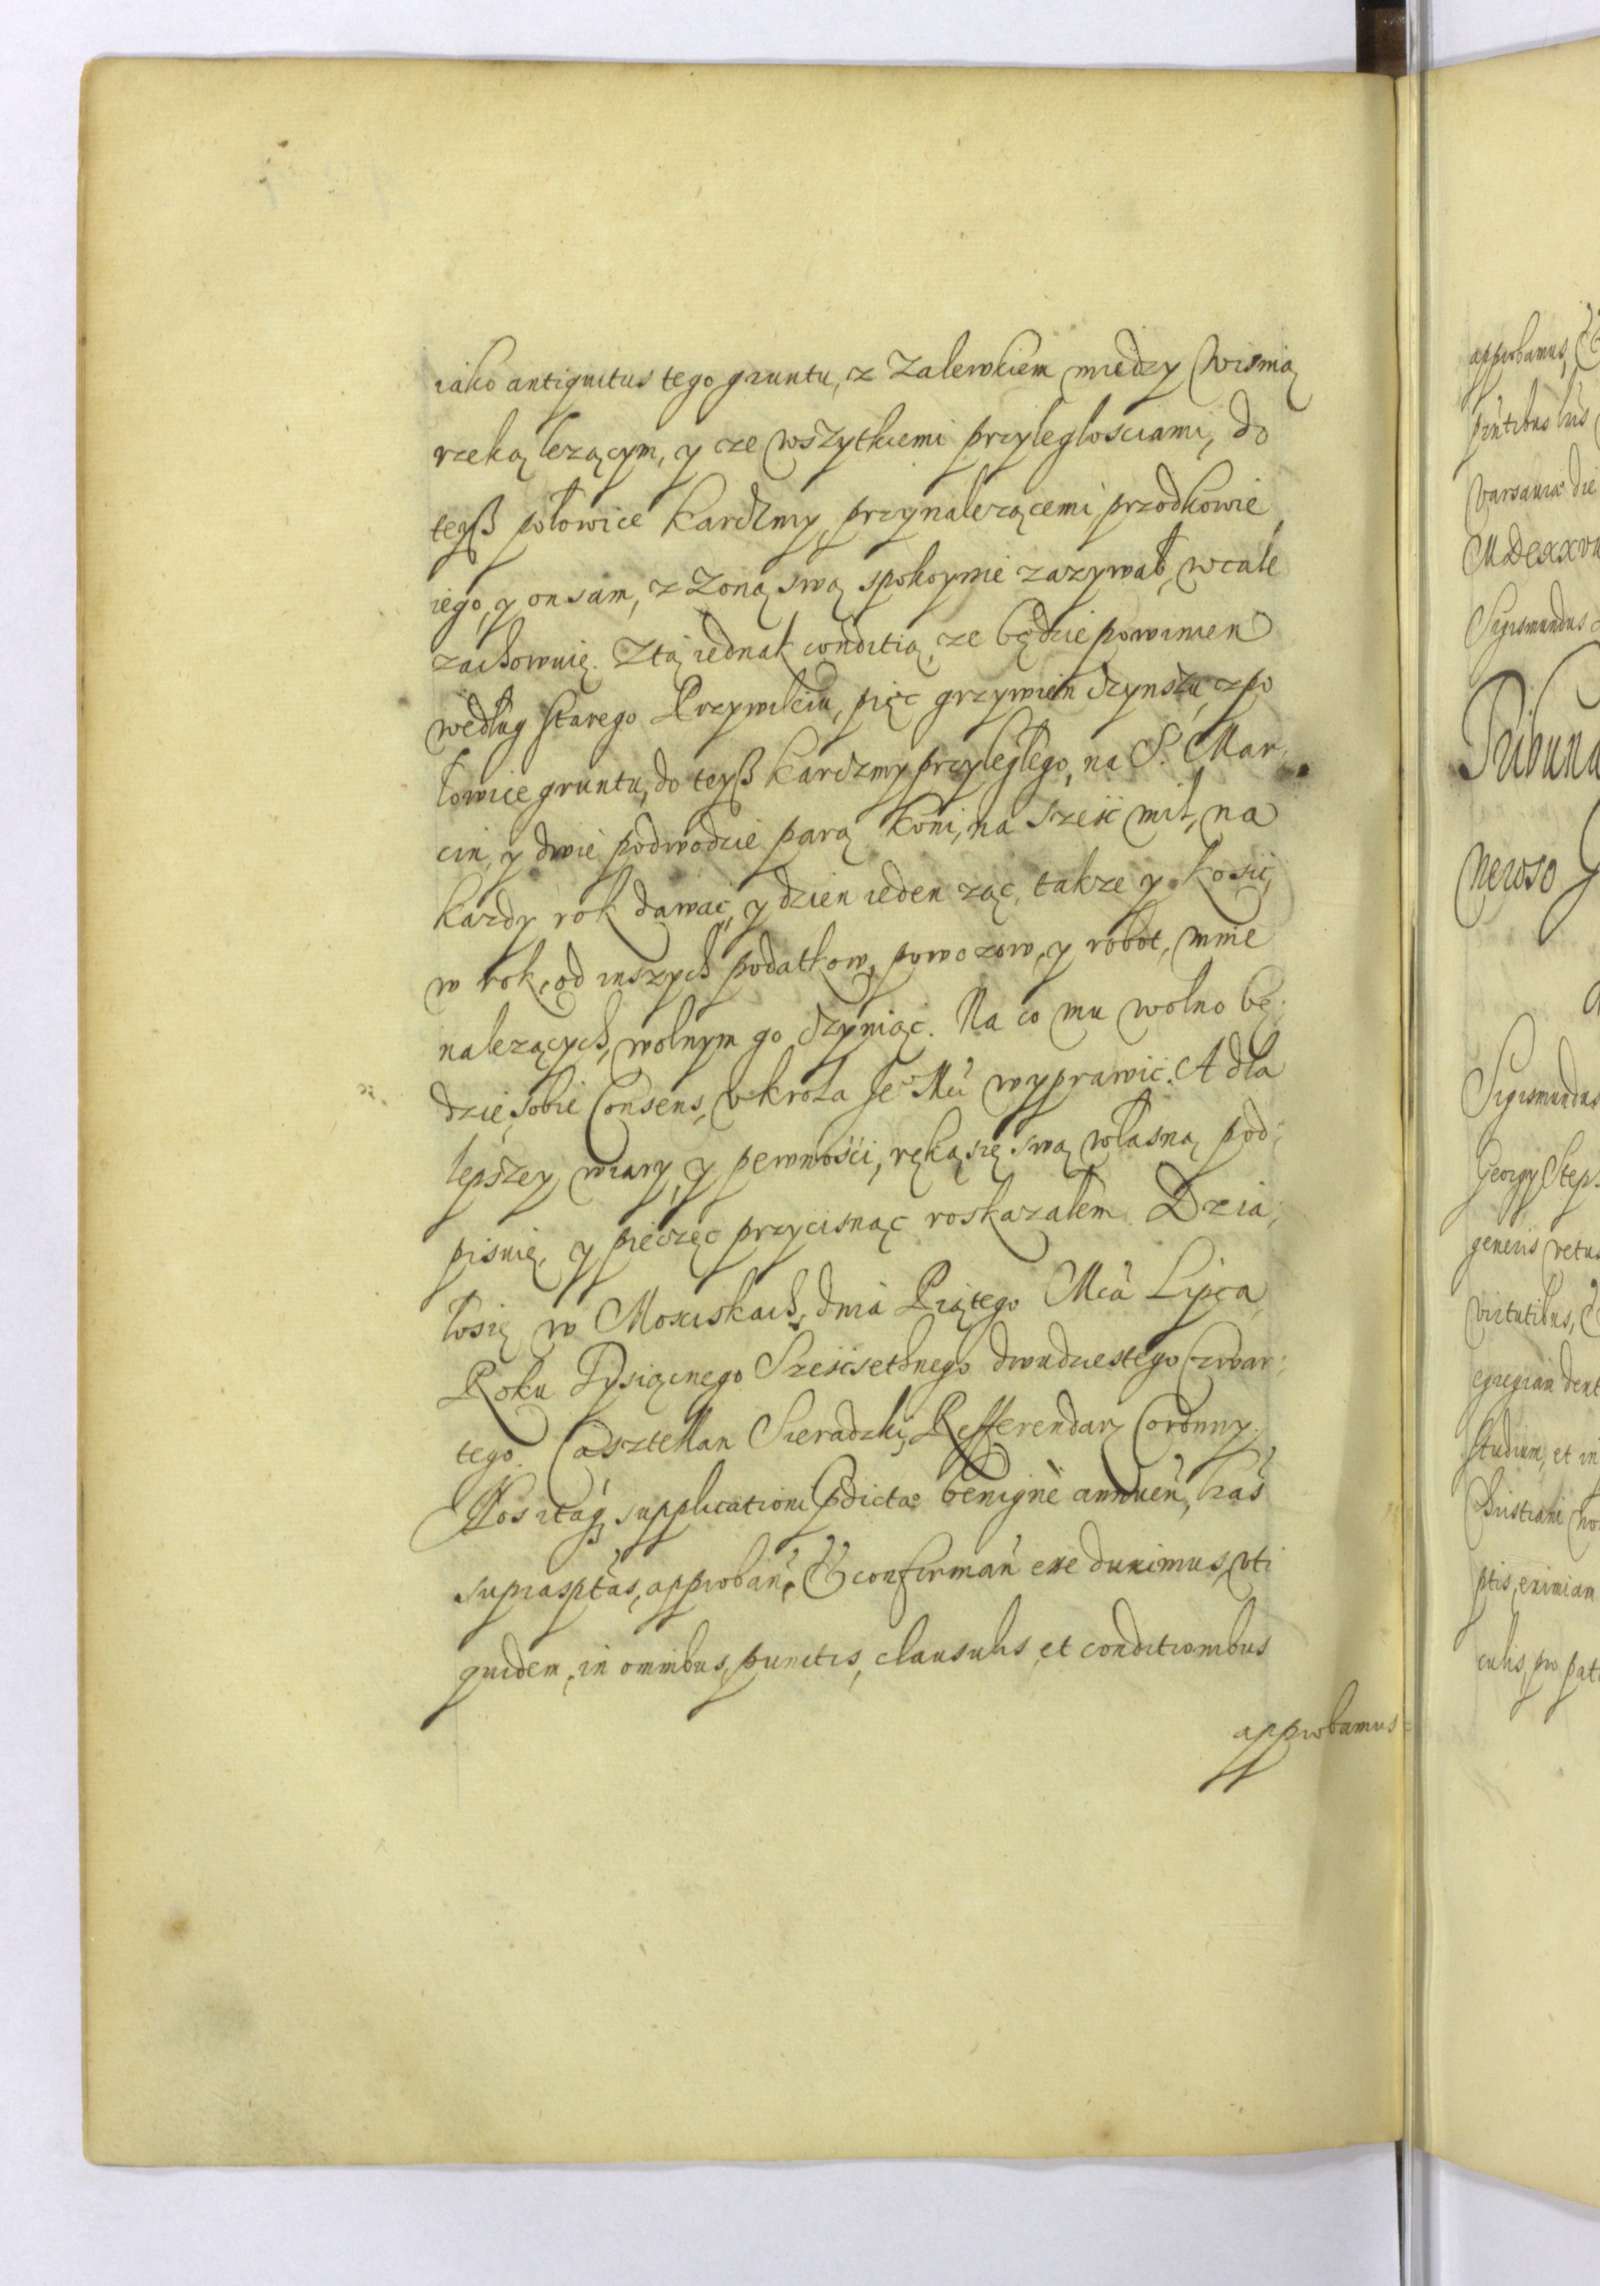 iako antiquitus tego gruntu, z Zalewkiem miedzy Wisnią
rzeką lezącym, y ze wszytkiemi przyległosciami, do
teyß połowice Karczmy, przynalezącemi, przodkowie
iego, y on sam, z Zoną swą spokoynie zazywał, wcale
zachowuię. Ztą iednak conditią, ze będzie powinien
według starego Przywileiu, pięc grzywien czynszu, z po
łowice gruntu, do teyß karczmy przyległego, na S. Mar,
cin, y dwie podwodzie parą koni, na szesc mil, na
kazdy rok dawac, y dzien ieden ząc, takze y kosic,
w rok, od inszych podatkow, powozow, y robot, mnie
nalezących, wolnym go czyniąc. Na co mu wolno bę,
dzie sobie Consens, v krola Je° Mci wyprawić. A dla
lepszey wiary, y pewnosci, ręką się swą własną pod,
pisuię, y pieczęc przycisnąc roskazałem. Dzia,
łosię w Mosciskach, dnia Piątego Mca Lipca,
Roku Tysiącnego Szescsethnego dwudziestego Czwar,
tego. Casztellan Sieradzki, Refferendarz Coronny.
Nos itaq; supplicationi pdictæ benignè annuen, lras
suprasptas, approban, & confirman esse duximus, vti
quidem, in omnibus, punctis, clausulis, et conditionibus
approbamus
approbamus, &
pntibus lris
Varsauiæ die
MDCXXVII
Sigismundus
Tribuna
neroso G
Sigismundus
Georgy Step
generis vetus
virtutibus,
egregiam dent
studium, et in
Christiani no
ptis, eximiam
culis, pro pat